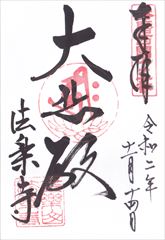 奉拝
令和二年
十一月十四日
大悲殿
法楽寺